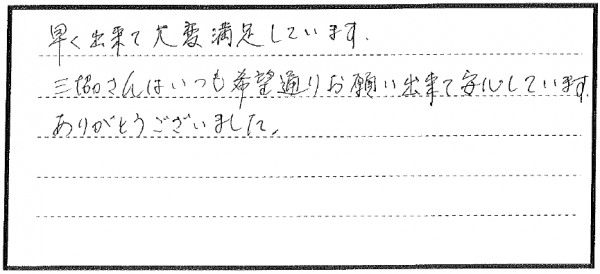 早く出来て大変満足しています.
三協さんはいつも希望通りお願い出来て安心しています.
ありがとうございました。